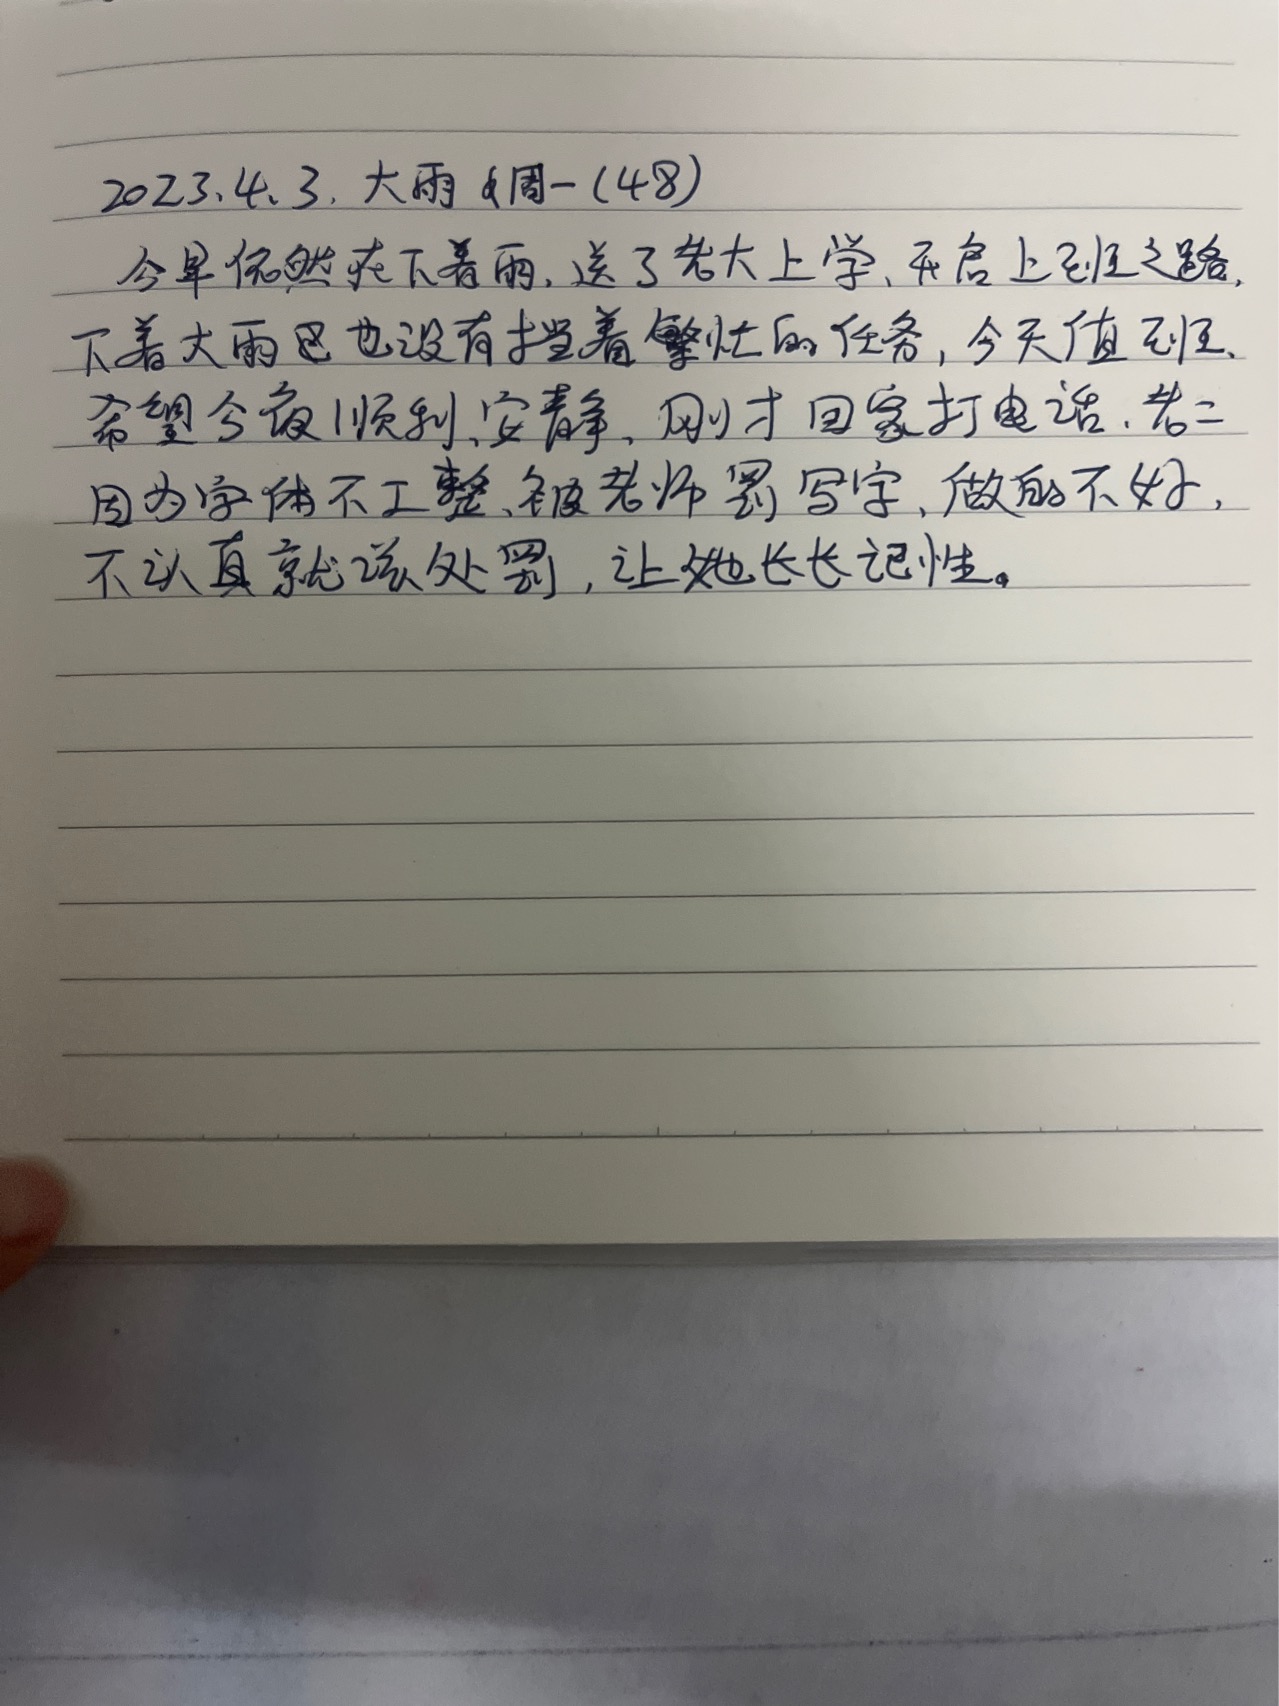 2023.4.3. 大雨 周一(48)
今早依然在下着雨,送了老大上学、开启上班之路,
下着大雨也没有挡着繁忙的任务,今天值班、
希望今夜顺利、安静、刚才回家打电话、老二
因为字体不工整、被老师罚写字、做的不好,
不认真就该处罚,让她长长记性。